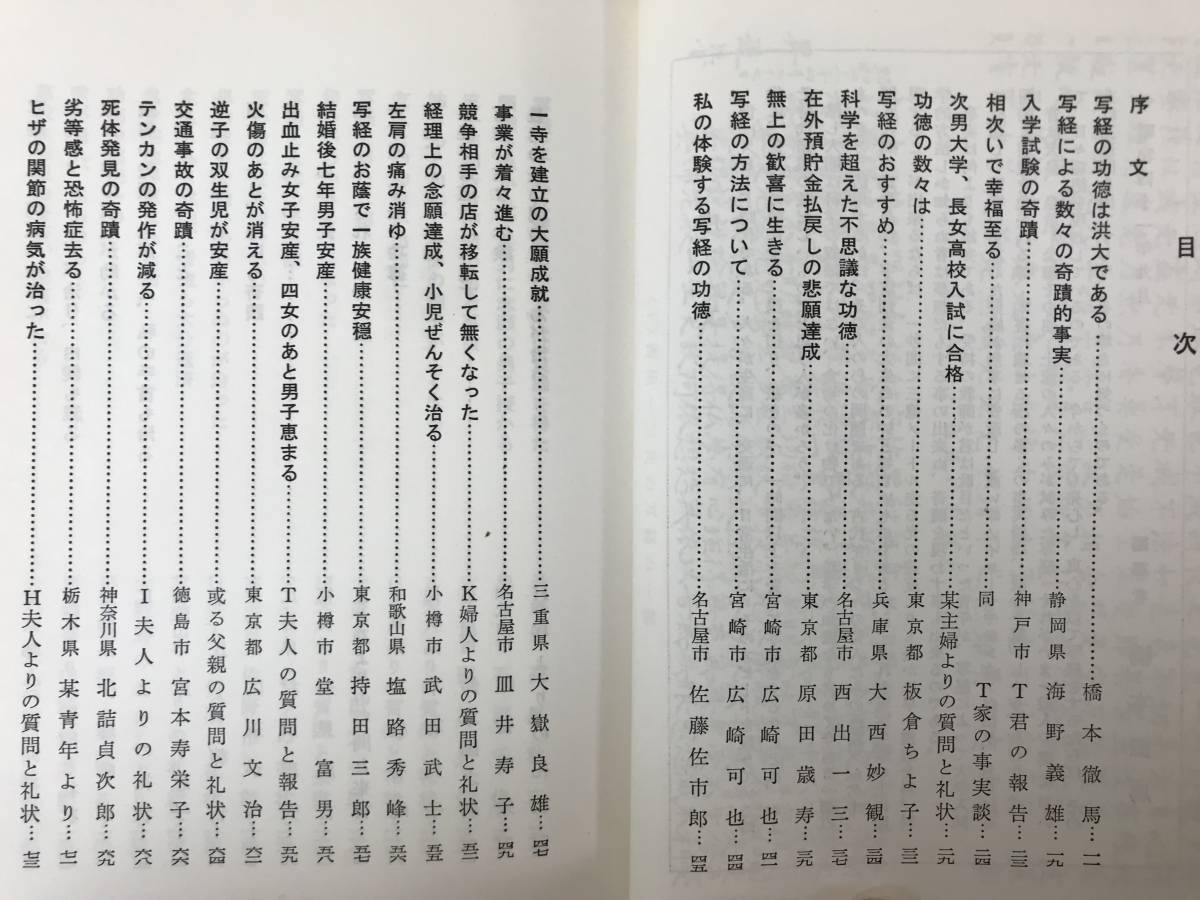 目次
序文
写経の功徳は洪大である……………橋本徹馬…一一
写経による数々の奇蹟的事実……………静岡県 海野義雄…一九
入学試験の奇蹟……………神戸市 T君の報告…二三
相次いで幸福至る……………同 T家の事実談…二四
次男大学、長女高校入試に合格……………某主婦よりの質問と礼状…二九
功徳の数々は……………東京都 板倉ちよ子…三三
写経のおすすめ……………兵庫県 大西妙観…三四
科学を超えた不思議な功徳……………名古屋市 西出一三…三七
在外預貯金払戻しの悲願達成……………東京都 原田歳寿…三九
無上の歓喜に生きる……………宮崎市 広崎可也…四一
写経の方法について……………宮崎市 広崎可也…四四
私の体験する写経の功徳……………名古屋市 佐藤佐市郎…四五
一寺を建立の大願成就……………三重県 大嶽良雄…四七
事業が着々進む……………名古屋市 皿井寿子…四九
競争相手の店が移転して無くなった……………K婦人よりの質問と礼状…五二
経理上の念願達成、小児ぜんそく治る……………小樽市 武田武士…五五
左肩の痛み消ゆ……………和歌山県 塩路秀峰…五六
写経のお蔭で一族健康安穏……………東京都 持田三郎…五七
結婚後七年男子安産……………小樽市 堂富男…五八
出血止み女子安産、四女のあと男子恵まる……………T夫人の質問と報告…五九
火傷のあとが消える……………東京都 広川文治…六二
逆子の双生児が安産……………或る父親の質問と礼状…六四
交通事故の奇蹟……………徳島市 宮本寿栄子…六六
テンカンの発作が減る……………I夫人よりの礼状…六八
死体発見の奇蹟……………神奈川県 北詰貞次郎…六九
劣等感と恐怖症去る……………栃木県 某青年より…七二
ヒザの関節の病気が治った……………H夫人よりの質問と礼状…七三